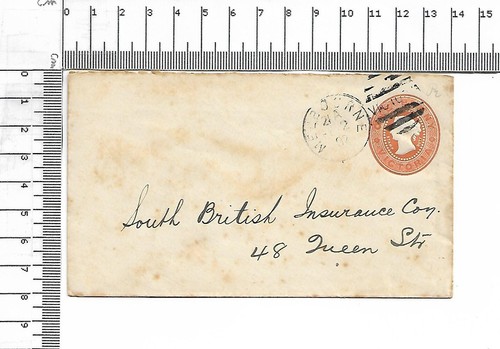 cm 0 1 2 3 4 5 6 7 8 9 10 11 12 13 14 15
cm
0
1
2
3
4
5
6
7
8
9
MELBOURNE
VICTORIA
South British Insurance Coy.
48 Queen Str